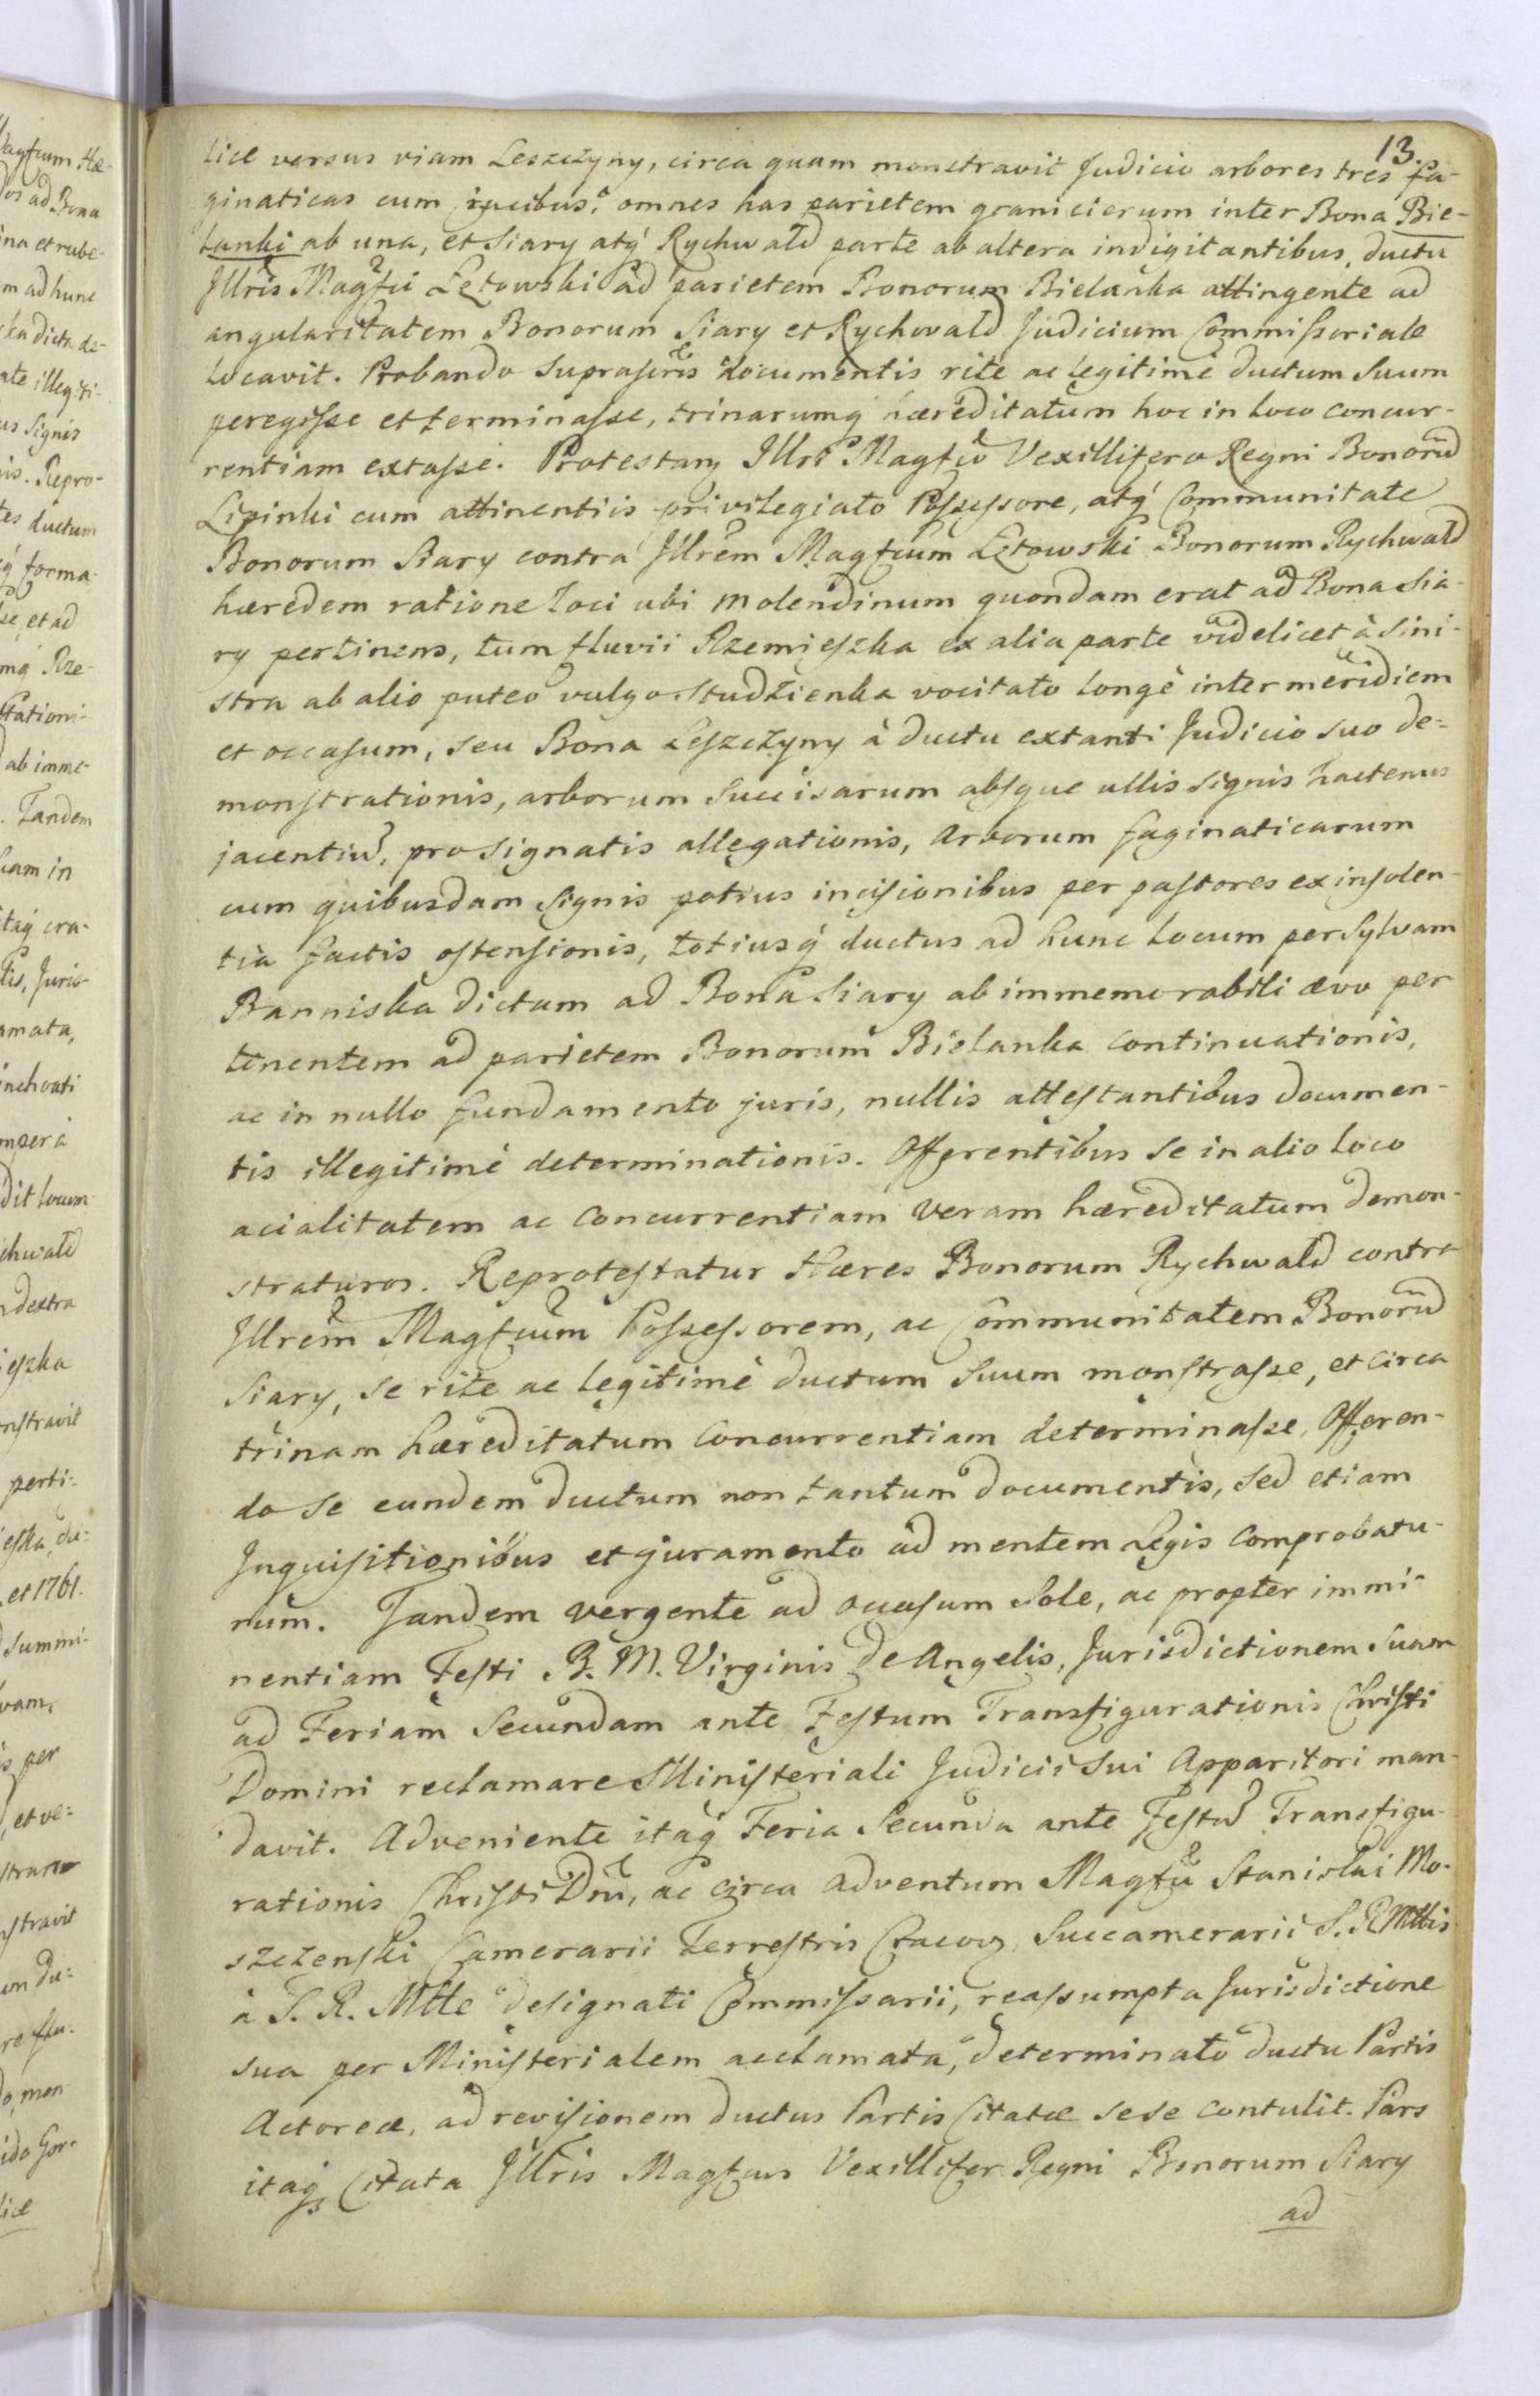 13.
liae versus viam Leszczyny, circa quam monstravit Judicio arbores tres fa-
ginaticas cum crucibus, omnes has parietem granicierum inter Bona Bie-
lanki ab una, et Siary atq́ Rychwałd parte ab altera indigitantibus, ductu
Jllris Magfci Łętowski ad parietem Bonorum Bielanka attingente ad
angularitatem Bonorum Siary et Rychwałd Judicium Commissoriale
locavit. Probando suprascris documentis rite ac legitimè ductum suum
peregisse et terminasse, trinarumq́ hæreditatum hoc in loco concur-
rentiam extasse. Protestan Jllri Magfco Vexillifero Regni Bonorũ
Lipinki cum attinentiis privilegiato Possessore, atq́ Communitate
Bonorum Siary contra Jllrem Magfcum Łętowski Bonorum Rychwałd
hæredem ratione loci ubi molendinum quondam erat ad Bona Sia-
ry pertinens, tum fluvii Rzemieszka ex alia parte videlicet à sini-
stra ab alio puteo vulgo Studzienka vocitato longè inter meridiem
et occasum, seu Bona Leszczyny à ductu extanti Judicio suo de-
monstrationis, arborum succisarum absque ullis signis hactenus
jacentiũ, pro signatis allegationis, arborum faginaticarum
cum quibusdam signis potius incisionibus per pastores ex insolen-
tia factis ostensionis, totiusq́ ductus ad hunc locum per Sylvam
Banniska dictam ad Bona Siary ab immemorabili ævo per
tenentem ad parietem Bonorum Bielanka continuationis,
ac in nullo fundamento juris, nullis attestantibus documen-
tis illegitimè determinationis. Offerentibus se in alio loco
acialitatem ac concurrentiam veram hæreditatum demon-
straturos. Reprotestatur Hæres Bonorum Rychwałd contra
Jllrem Magfcum Possessorem, ac Communitatem Bonorũ
Siary, se rite ac legitimè ductum suum monstrasse, et circa
trinam hæreditatum concurrentiam determinasse, Offeren-
do se eundem ductum non tantum documentis, sed etiam
Jnquisitionibus et juramento ad mentem Legis comprobatu-
rum. Tandem vergente ad occasum Sole, ac propter immi-
nentiam Festi B. M. Virginis de Angelis, Jurisdictionem suam
ad Feriam Secundam ante Festum Transfigurationis Christi
Domini reclamare Ministeriali Judicii sui Apparitori man-
davit. Adveniente itaq́ Feria Secunda ante Festũ Transfigu-
rationis Christi Dni, ac circa adventum Magfci Stanislai Mo-
szczenski Camerarii Terrestris Cracov, Succamerarii S. R Mttis
à S. R. Mtte designati Commissarii, reassumpta Jurisdictione
sua per Ministerialem acclamata, determinato ductu Partis
Actoreæ, ad revisionem ductus Partis Citatæ sese contulit. Pars
itaq Citata Jllris Magfcus Vexillifer Regni Bonorum Siary
ad